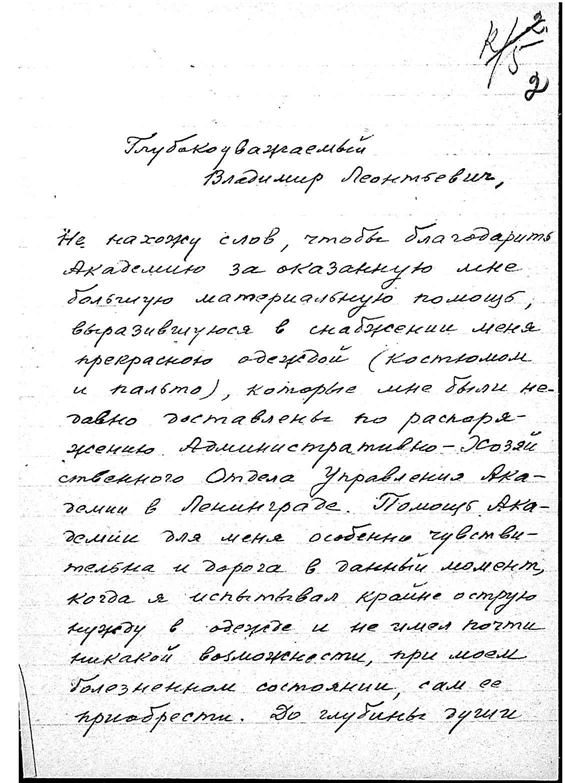 К/5 2
2
Глубокоуважаемый
Владимир Леонтьевич,
Не нахожу слов, чтобы благодарить
Академию за оказанную мне
большую материальную помощь,
выразившуюся в снабжении меня
прекрасною одеждой (костюмом
и пальто), которые мне были не-
давно доставлены по распоря-
жению Административно-Хозяй
ственного Отдела Управления Ака-
демии в Ленинграде. Помощь Ака-
демии для меня особенно чувстви-
тельна и дорога в данный момент,
когда я испытывал крайне острую
нужду в одежде и не имел почти
никакой возможности, при моем
болезненном состоянии, сам ее
приобрести. До глубины души